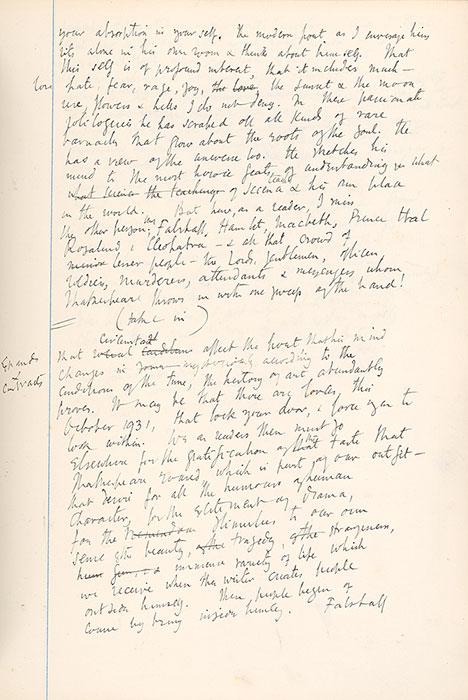 your absorption in yourself. The modern poet as I envisage him
sits alone in his own room & thinks about himself. That
this self is of profound interest, that it includes much —
love
hate, fear, rage, joy, the love, the sunset & the moon
rise, flowers & hills I do not deny. In these passionate
soliloquies he has scraped off all kinds of rare
barnacles that grow about the roots of the soul. He
has a view of the universe too. He stretches his
mind to the most heroic feats of understanding what
what science the teachings of science & his own place
in the world. But here, as a reader, I miss
the other person; Falstaff, Hamlet, Macbeth, Prince Hal
Rosalind & Cleopatra — & all that crowd of
lesser people — the Lords, gentlemen, officers
soldiers, murderers, attendants & messengers whom
Shakespeare throws in with one sweep of the hand!
(take in)
circumstances
Expands
& contracts
That affect the poet that his mind
changes in according to the
conditions of the time, the history of art abundantly
proves. It may be that there are forces, this
October 1931, that lock your door, & force you to
look within. We as readers then must go
elsewhere for the gratification of that taste that
Shakespeare roused which is part of our outfit —
that desire for all the humours of human
character, for the excitement of drama,
for the glimpses to our own
sense of the beauty, of the tragedy of the strangeness,
& immense variety of life which
we receive when the writer creates people
outside himself. Then, people began of
came by being inside himself. Falstaff